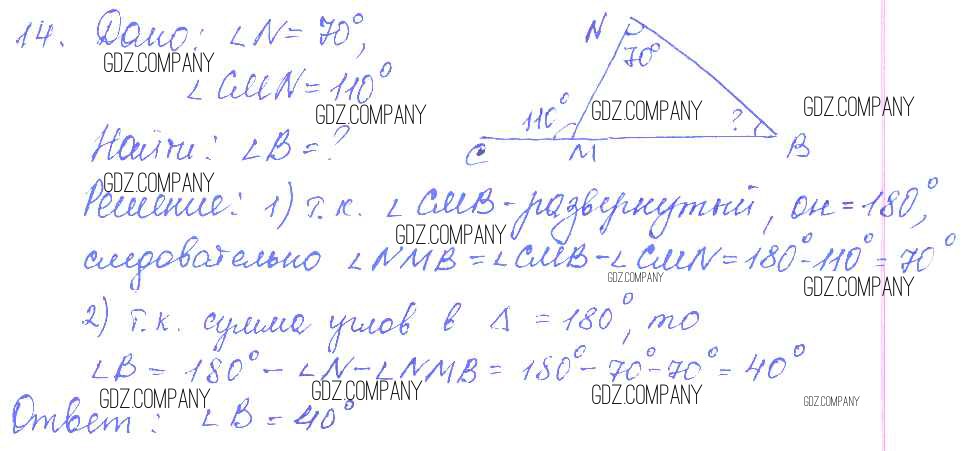 14. Дано: ∠N = 70°,
∠CMN = 110°
Найти: ∠B = ?
N
70°
110°
?
C
M
B
Решение: 1) т.к. ∠CMB - развернутый, он = 180°,
следовательно ∠NMB = ∠CMB - ∠CMN = 180° - 110° = 70°
2) т.к. сумма углов в Δ = 180°, то
∠B = 180° - ∠N - ∠NMB = 180° - 70° - 70° = 40°
Ответ: ∠B = 40°
GDZ.COMPANY
GDZ.COMPANY
GDZ.COMPANY
GDZ.COMPANY
GDZ.COMPANY
GDZ.COMPANY
GDZ.COMPANY
GDZ.COMPANY
GDZ.COMPANY
GDZ.COMPANY
GDZ.COMPANY
GDZ.COMPANY